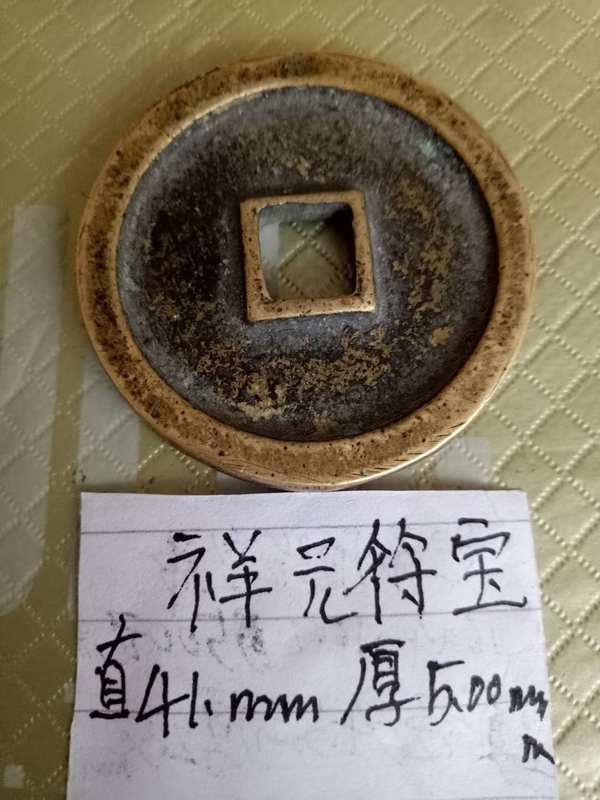 祥元符宝
直41.mm 厚5.00mm